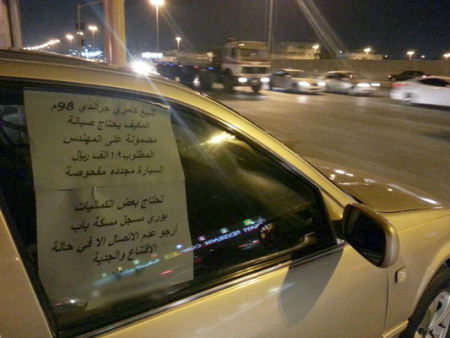 للبيع كامري جراندي 98م
المكيف يحتاج صيانة
مضمونة على المهندس
المطلوب ١٩الف ريال
السيارة مجدده مفحوصة
تحتاج بعض الكماليات
بوري مسجل مسكة باب
أرجو عدم الاتصال الا في حالة
الاقتناع والجدية